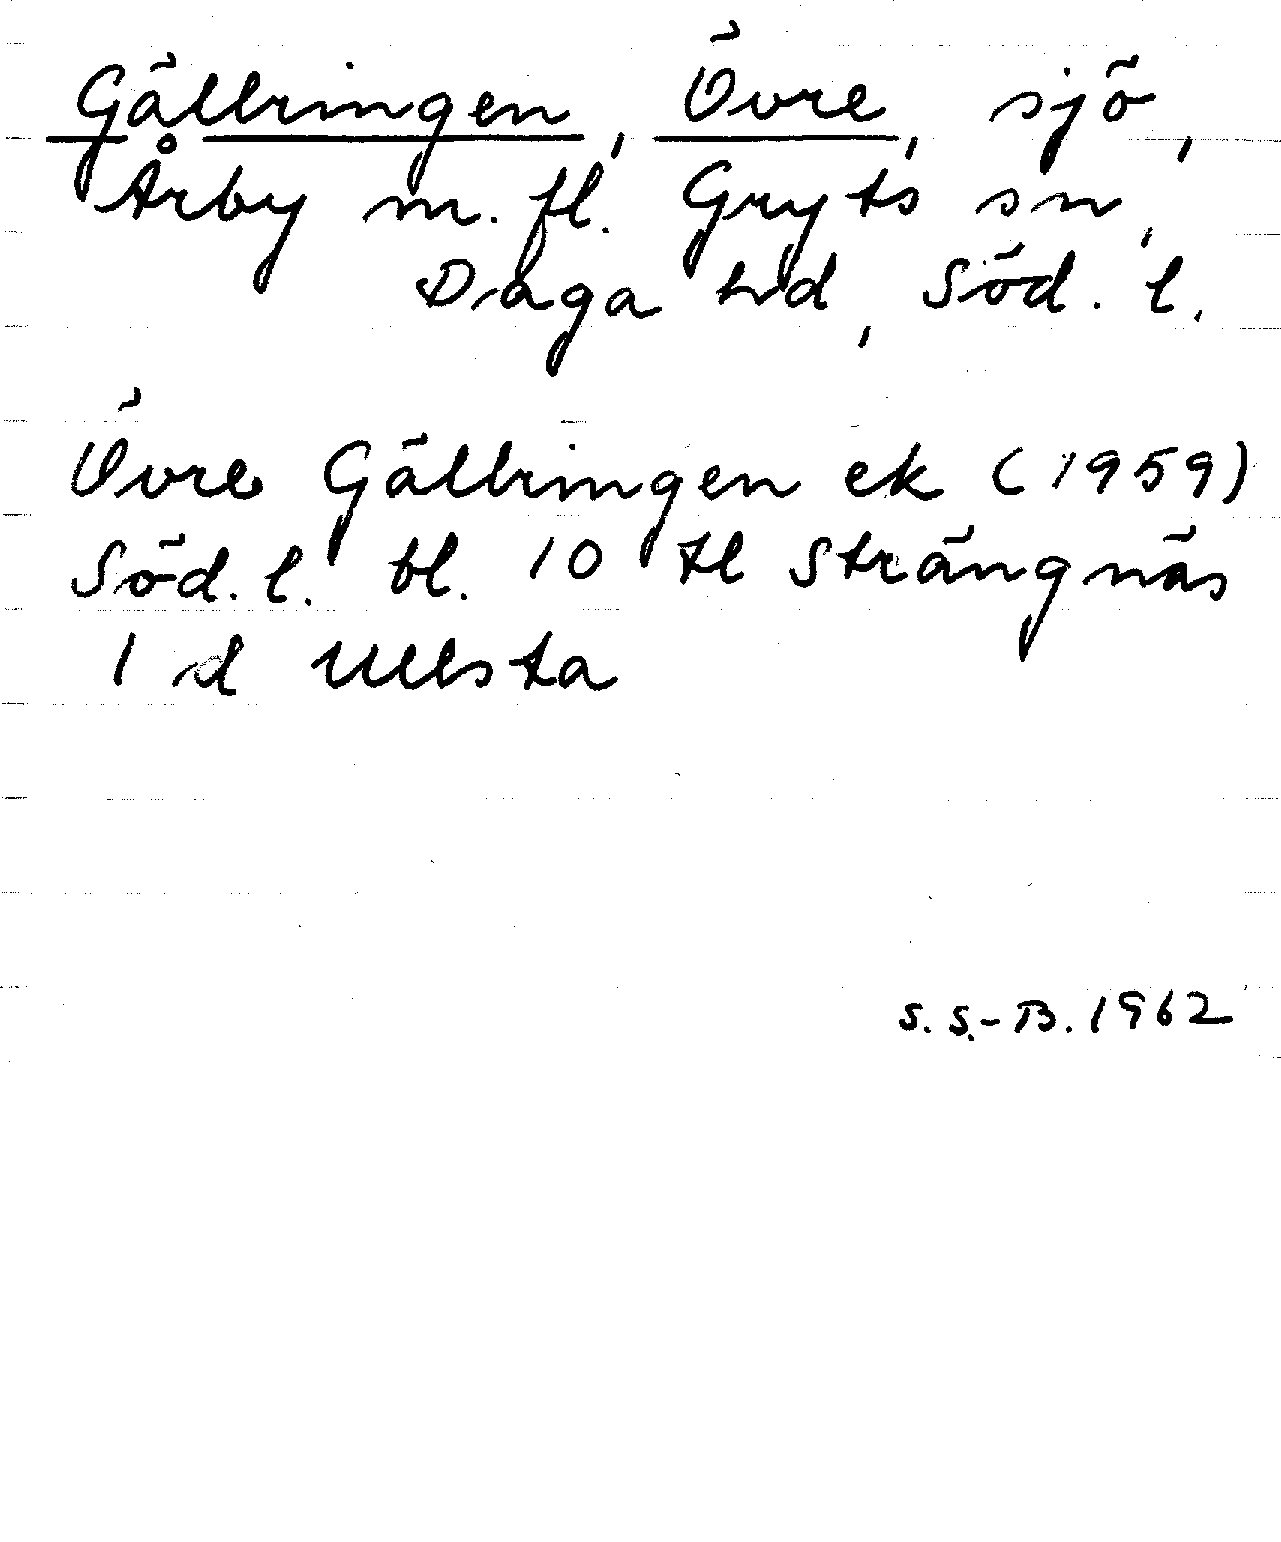 Gällringen, Övre, sjö,
Årby m. fl. Gryts sn,
Daga hd, Söd. l.
Övre Gällringen ek (1959)
Söd. l. bl. 10 tl Strängnäs
1 d Ullsta
S. S.-B. 1962